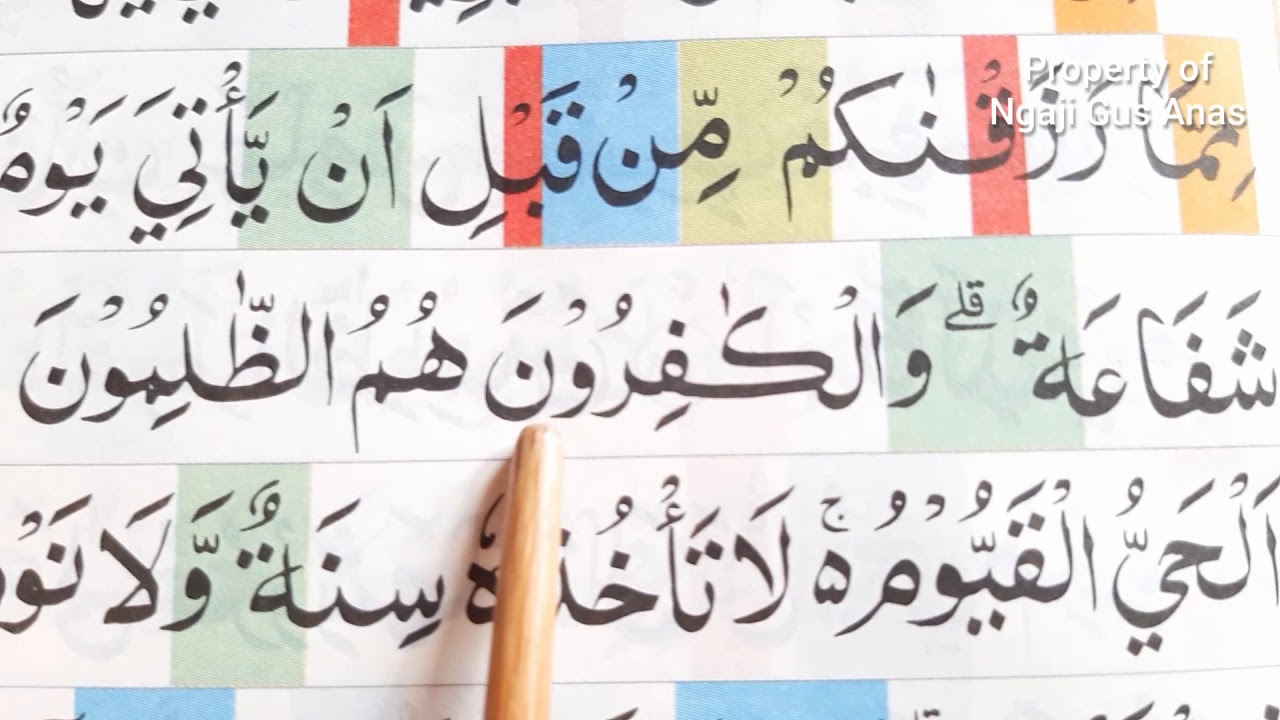 مِمَّا رَزَقْنٰكُمْ مِّنْ قَبْلِ اَنْ يَّأْتِيَ يَوْمٌ
شَفَاعَةٌ ۗ وَالْكٰفِرُوْنَ هُمُ الظّٰلِمُوْنَ
اَلْحَيُّ الْقَيُّوْمُ ەۚ لَا تَأْخُذُهٗ سِنَةٌ وَّلَا نَوْ
Property of
Ngaji Gus Anas